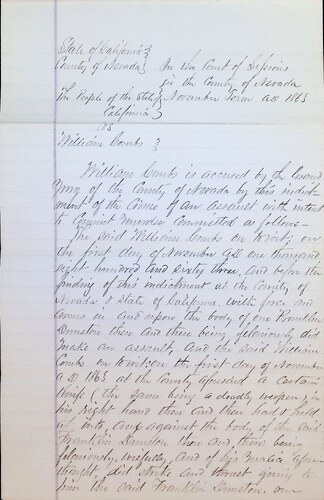 State of California }
County of Nevada } In the Court of Sessions
in the County of Nevada
The People of the State of } November Term AD 1863
California
vs
William Combs }
William Combs is accused by the Grand
Jury of the County of Nevada by this indict-
ment of the Crime of an Assault with intent
to Commit Murder Committed as follows
The said William Combs on towit: on
the first day of November AD one thousand
eight hundred and sixty three, and before the
finding of this indictment at the County of
Nevada & State of California, with force and
arms in and upon the body of one Franklin
Dunston then and there being, feloniously did
make an assault, and the said William
Combs on towit: on the first day of November
AD 1863 at the County aforesaid a certain
Knife (the same being a deadly weapon) in
his right hand then and there had & held
at, into, and against the body of the said
Franklin Dunston then and there being
feloniously, wilfully, and of his malice before
thought, did strike and thrust giving to
him the said Franklin Dunston, one